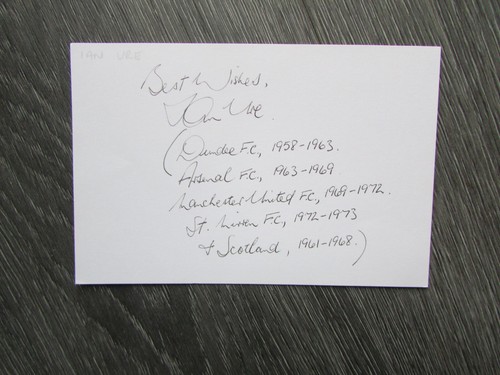 IAN URE
Best Wishes,
Ian Ure.
(Dundee F.C., 1958-1963.
Arsenal F.C., 1963-1969.
Manchester United F.C., 1969-1972.
St. Mirren F.C., 1972-1973
& Scotland, 1961-1968.)